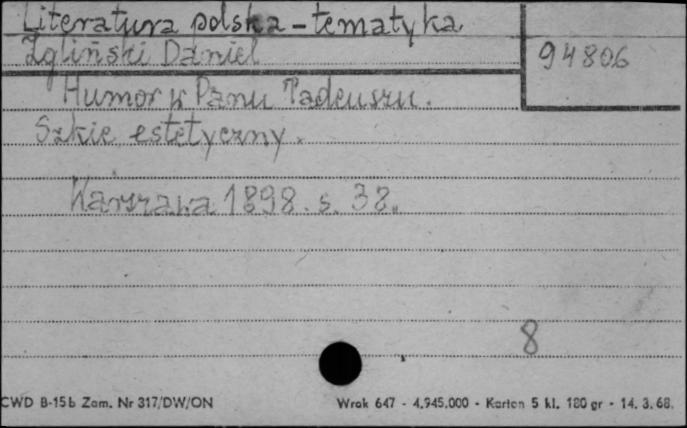 Literatura polska - tematyka
Zgliński Daniel
94806
Humor w Panu Tadeuszu.
Szkic estetyczny.
Warszawa 1898. s. 38.
8
CWD B-15b Zam. Nr 317/DW/ON
Wrak 647 - 4.945.000 - Karton 5 kl. 180 gr - 14. 3. 68.